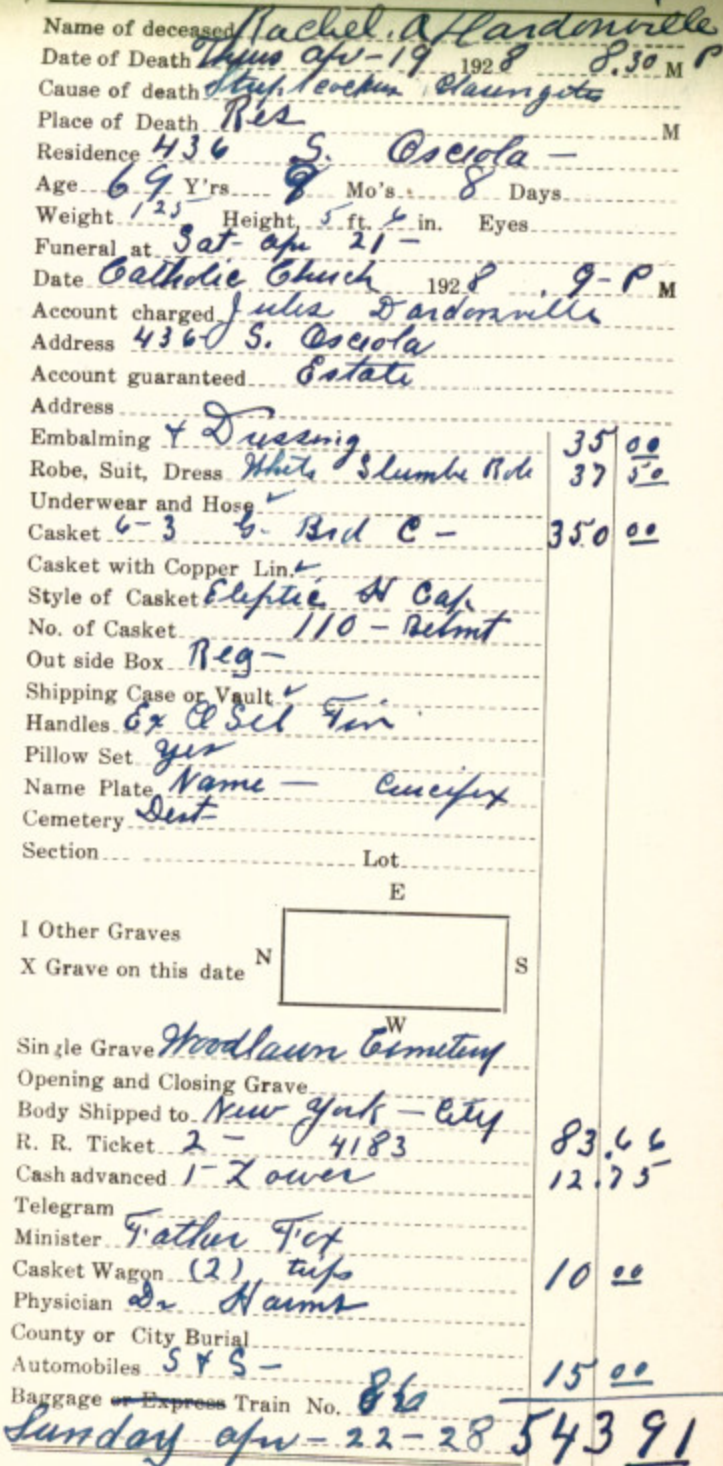 Name of deceased Rachel. A Hardonville
Date of Death Thurs Apr-19 1928 8.30 M P
Cause of death
Place of Death Res M
Residence 436 S. Osceola -
Age 69 Y'rs Mo's 8 Days
Weight 125 Height, 5 ft. 6 in. Eyes
Funeral at Sat- Apr 21 -
Date Catholic Church 1928 9-P M
Account charged Jules Dardonville
Address 436 S. Osceola
Account guaranteed Estate
Address
Embalming & Dressing 35 00
Robe, Suit, Dress White Slumbe Robe 37 50
Underwear and Hose ✓
Casket 6-3 G- Brd C - 350 00
Casket with Copper Lin. ✓
Style of Casket Eleptic H Cap
No. of Casket 110 - Belmt
Out side Box Reg -
Shipping Case or Vault ✓
Handles Ex Sil Fin
Pillow Set yes
Name Plate Name - Crucifex
Cemetery Dest-
Section Lot
E
I Other Graves
N S
X Grave on this date
W
Single Grave Woodlawn Cemetery
Opening and Closing Grave
Body Shipped to New York - City
R. R. Ticket 2 - 4183 83.66
Cash advanced 1- Lower 12.75
Telegram
Minister Father Fox
Casket Wagon (2) trips 10 00
Physician Dr Harms
County or City Burial
Automobiles S & S - 15 00
Baggage or Express Train No. 86
Sunday Apr - 22 - 28 543 91